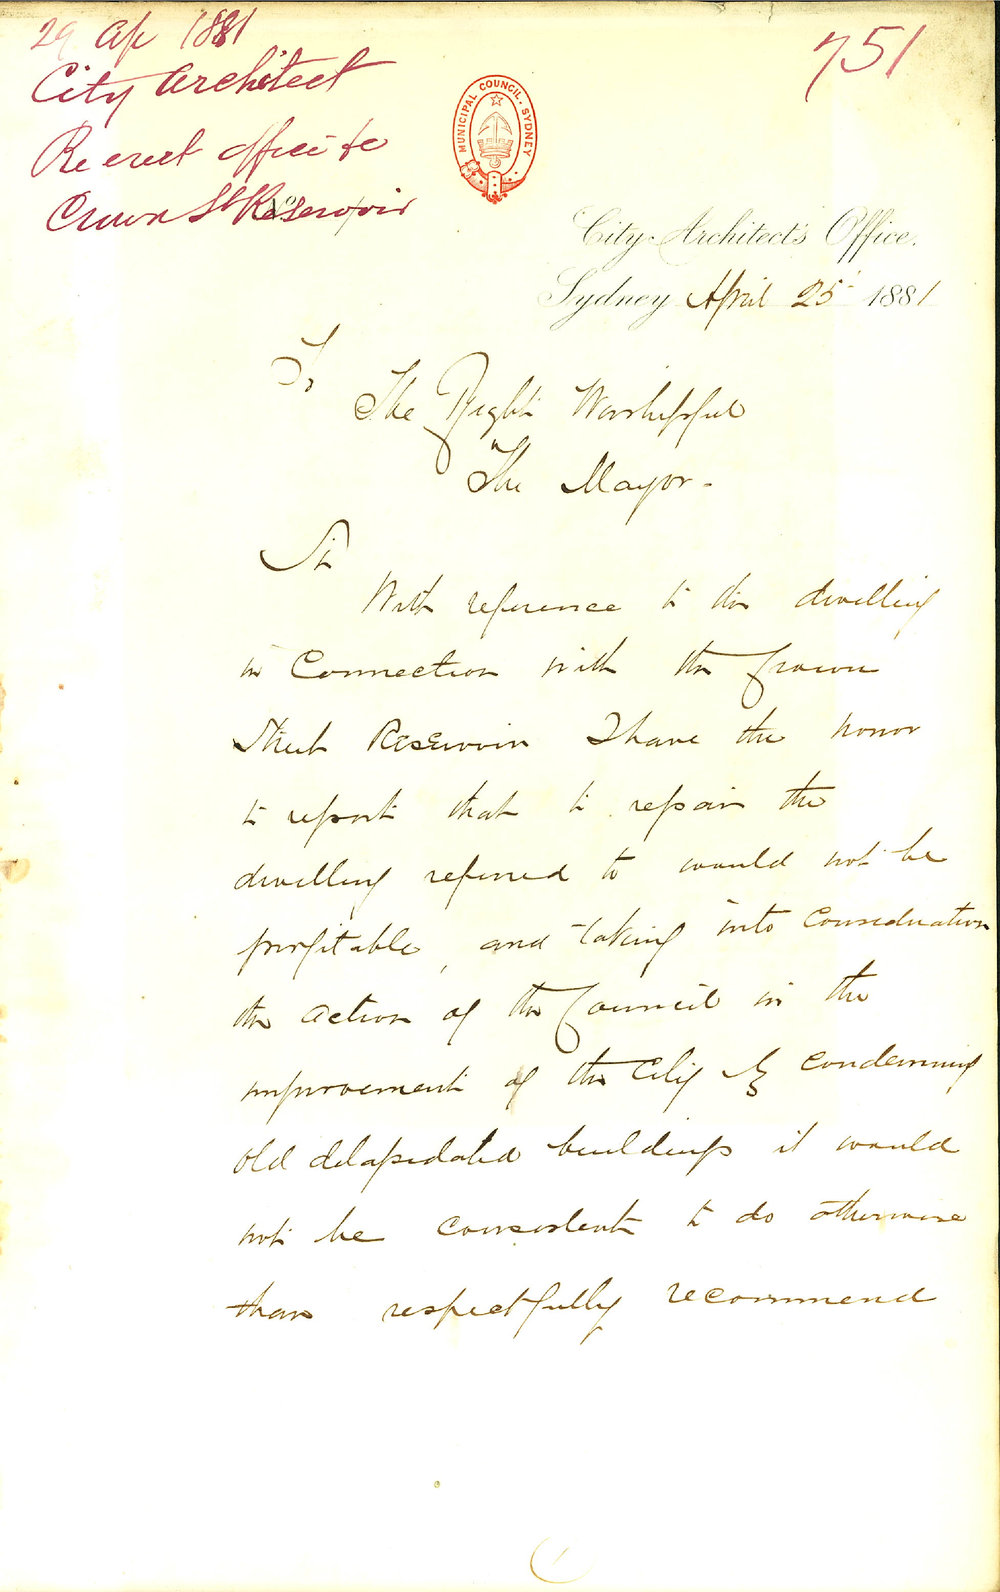 29 Ap 1881
City Architect
Re erect office &c
Crown St Reservoir
751
MUNICIPAL COUNCIL. SYDNEY
No.
City Architect's Office.
Sydney April 25 1881
To
The Right Worshipful
The Mayor -
Sir
With reference to the dwelling
in Connection with the Crown
Street Reservoir I have the honor
to report that to repair the
dwelling referred to would not be
profitable, and taking into Consideration
the action of the Council in the
improvement of the City by condemning
old delapedated buildings it would
not be consistent to do otherwise
than respectfully recommend